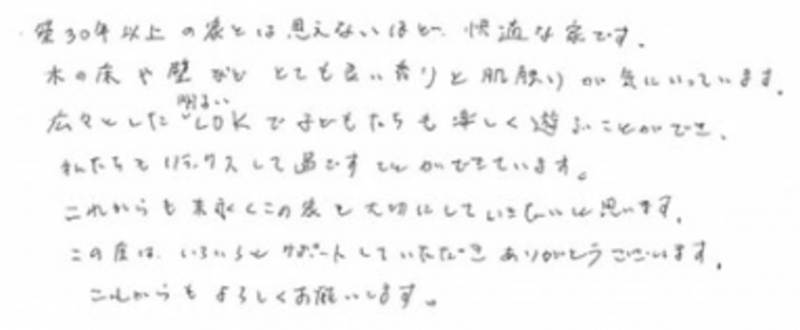 築30年以上の家とは思えないほど、快適な家です。
木の床や壁など とても良い香りと肌触りが気にいっています。
広々とした明るいLDKで子どもたちも楽しく遊ぶことができ、
私たちもリラックスして過ごすことができています。
これからも末永くこの家を大切にしていきたいと思います。
この度は、いろいろとサポートしていただきありがとうございます。
これからもよろしくお願いします。